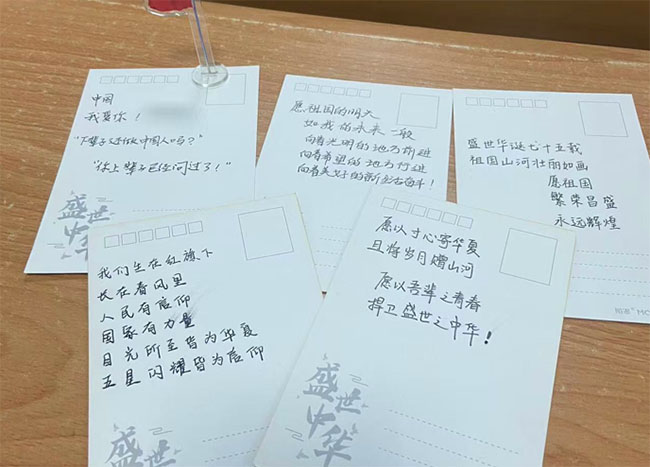 中国
我爱你！
“下辈子还做中国人吗？”
“你上辈子已经问过了！”
盛世
中华
愿祖国的明天
如我的未来一般
向着光明的地方前进
向着希望的地方行进
向着美好的新生活奋斗！
盛世华诞七十五载
祖国山河壮丽如画
愿祖国
繁荣昌盛
永远辉煌
我们生在红旗下
长在春风里
人民有信仰
国家有力量
目光所至皆为华夏
五星闪耀皆为信仰
盛世
中华
愿以寸心寄华夏
且将岁月赠山河
愿以吾辈之青春
捍卫盛世之中华！
盛世
中华